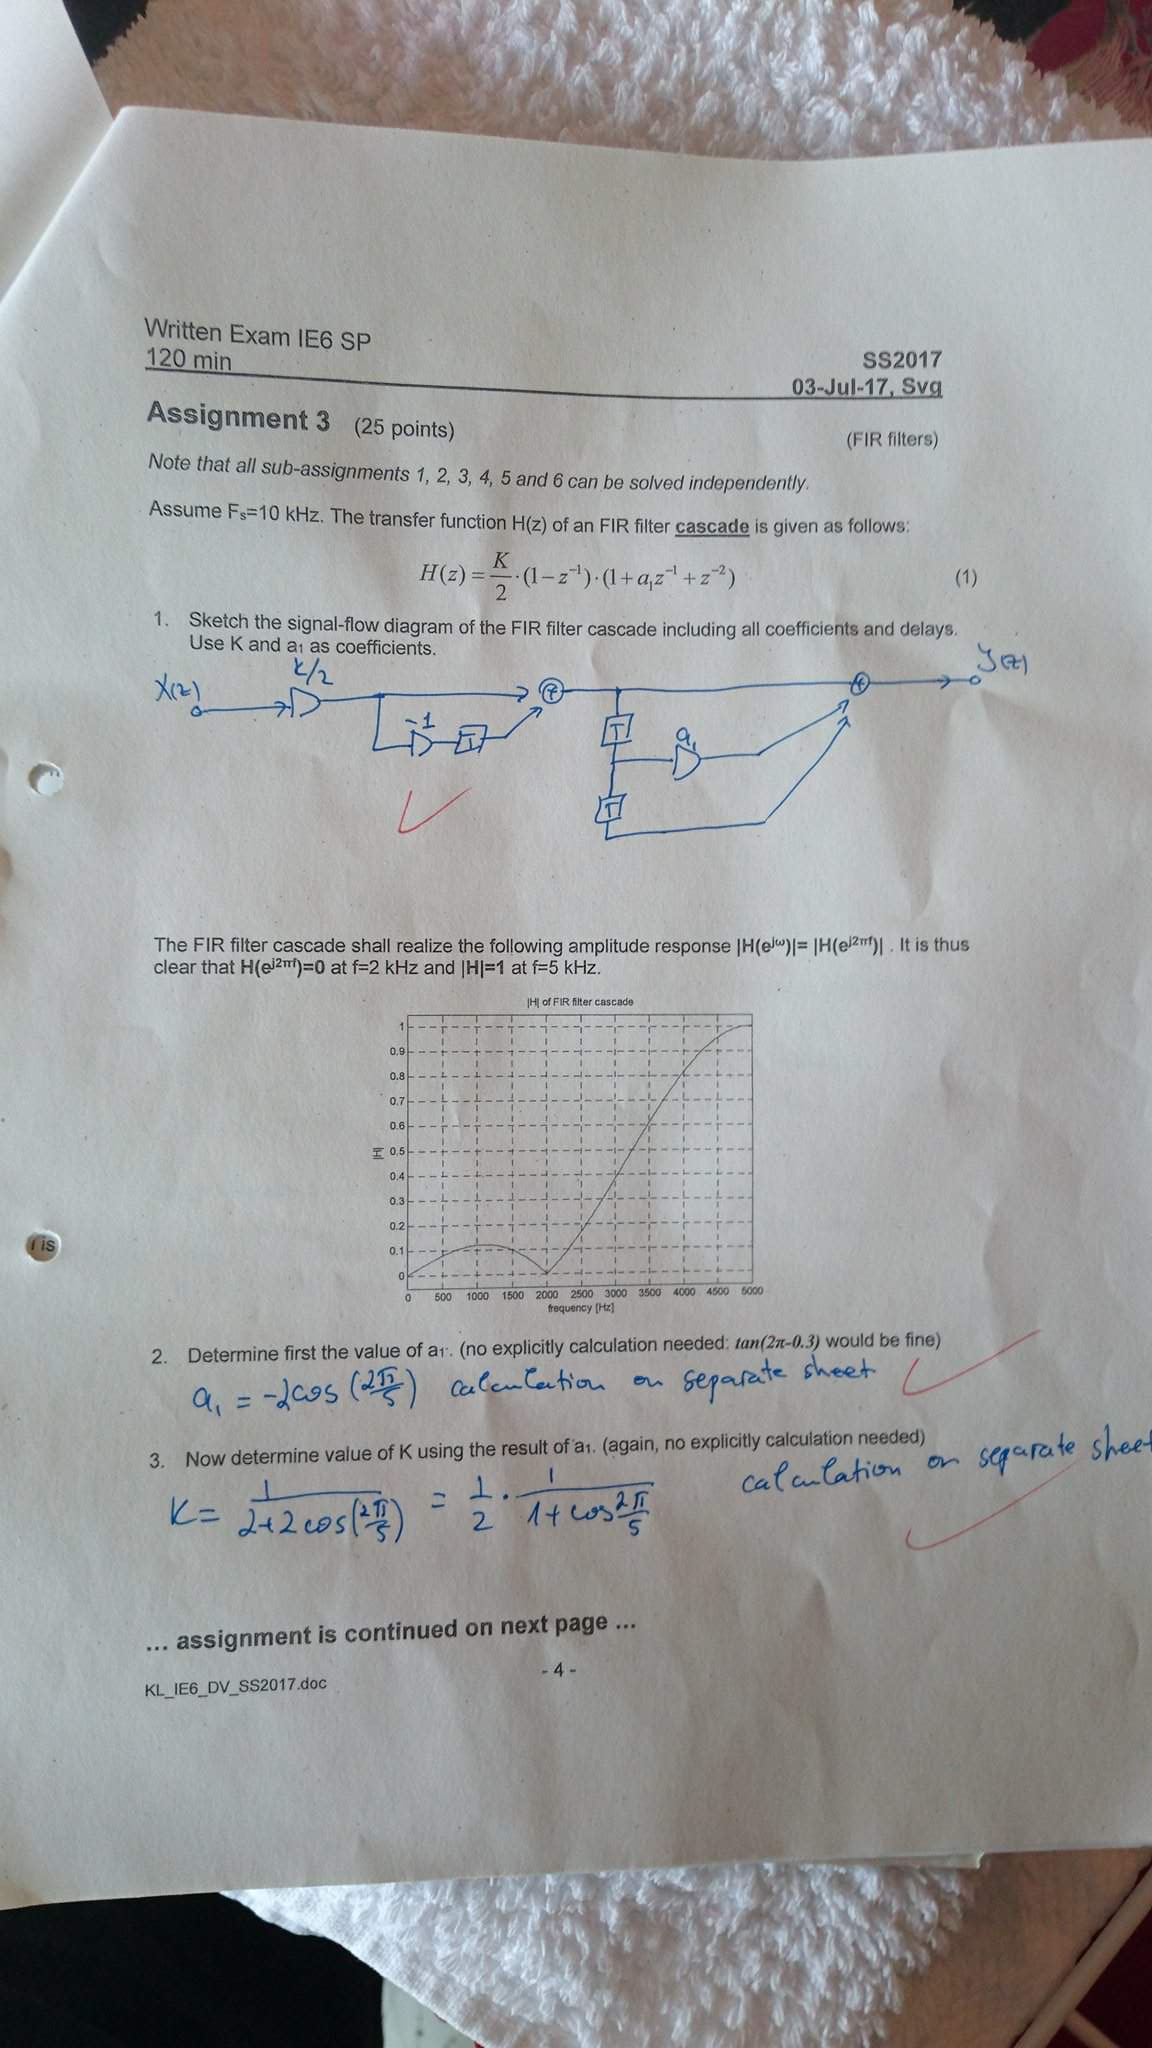 Written Exam IE6 SP
120 min
SS2017
03-Jul-17, Svg
Assignment 3 (25 points)
(FIR filters)
Note that all sub-assignments 1, 2, 3, 4, 5 and 6 can be solved independently.
Assume Fs=10 kHz. The transfer function H(z) of an FIR filter cascade is given as follows:
H(z) = K/2 · (1 − z⁻¹) · (1 + a₁z⁻¹ + z⁻²) (1)
1. Sketch the signal-flow diagram of the FIR filter cascade including all coefficients and delays.
Use K and a₁ as coefficients.
X(z) K/2 + + Y(z)
-1 T T a₁
T
The FIR filter cascade shall realize the following amplitude response |H(e^jω)|= |H(e^j2πf)| . It is thus
clear that H(e^j2πf)=0 at f=2 kHz and |H|=1 at f=5 kHz.
|H| of FIR filter cascade
1
0.9
0.8
0.7
0.6
|H| 0.5
0.4
0.3
0.2
0.1
0
0 500 1000 1500 2000 2500 3000 3500 4000 4500 5000
frequency [Hz]
2. Determine first the value of a₁. (no explicitly calculation needed: tan(2π-0.3) would be fine)
a₁ = -2cos(2π/5) calculation on separate sheet
3. Now determine value of K using the result of a₁. (again, no explicitly calculation needed)
K = 1/(2+2cos(2π/5)) = 1/2 · 1/(1+cos 2π/5) calculation on separate sheet
... assignment is continued on next page ...
- 4 -
KL_IE6_DV_SS2017.doc
is